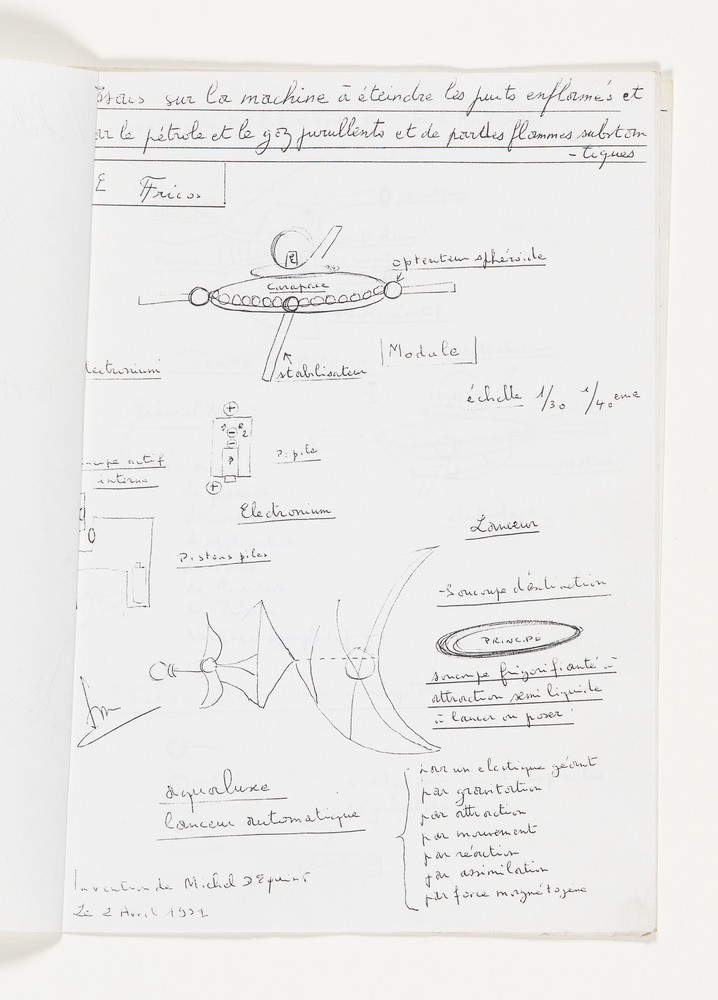 sur la machine à éteindre les puits enflamés et
le pétrole et le goz purullents et de partles flammes substan
- tiques
E Fricos
optenteur sphéroïde
carapace
stabilisateur
Module
lectronium
échelle 1/30 e 1/40 eme
+
P
Pipile
+
coupe actif
interne
Electronium
Pistons piles
Lanceur
- Soucoupe d'extinction
PRINCIPE
soucoupe frigorifiante à
attraction semi liquide
à lancer ou poser
aqualuxe
lanceur automatique
par un elastique géant
par gravitation
par attraction
par mouvement
par réaction
par assimilation
par force magnétogene
Invention de Michel
Le 2 Avril 1991